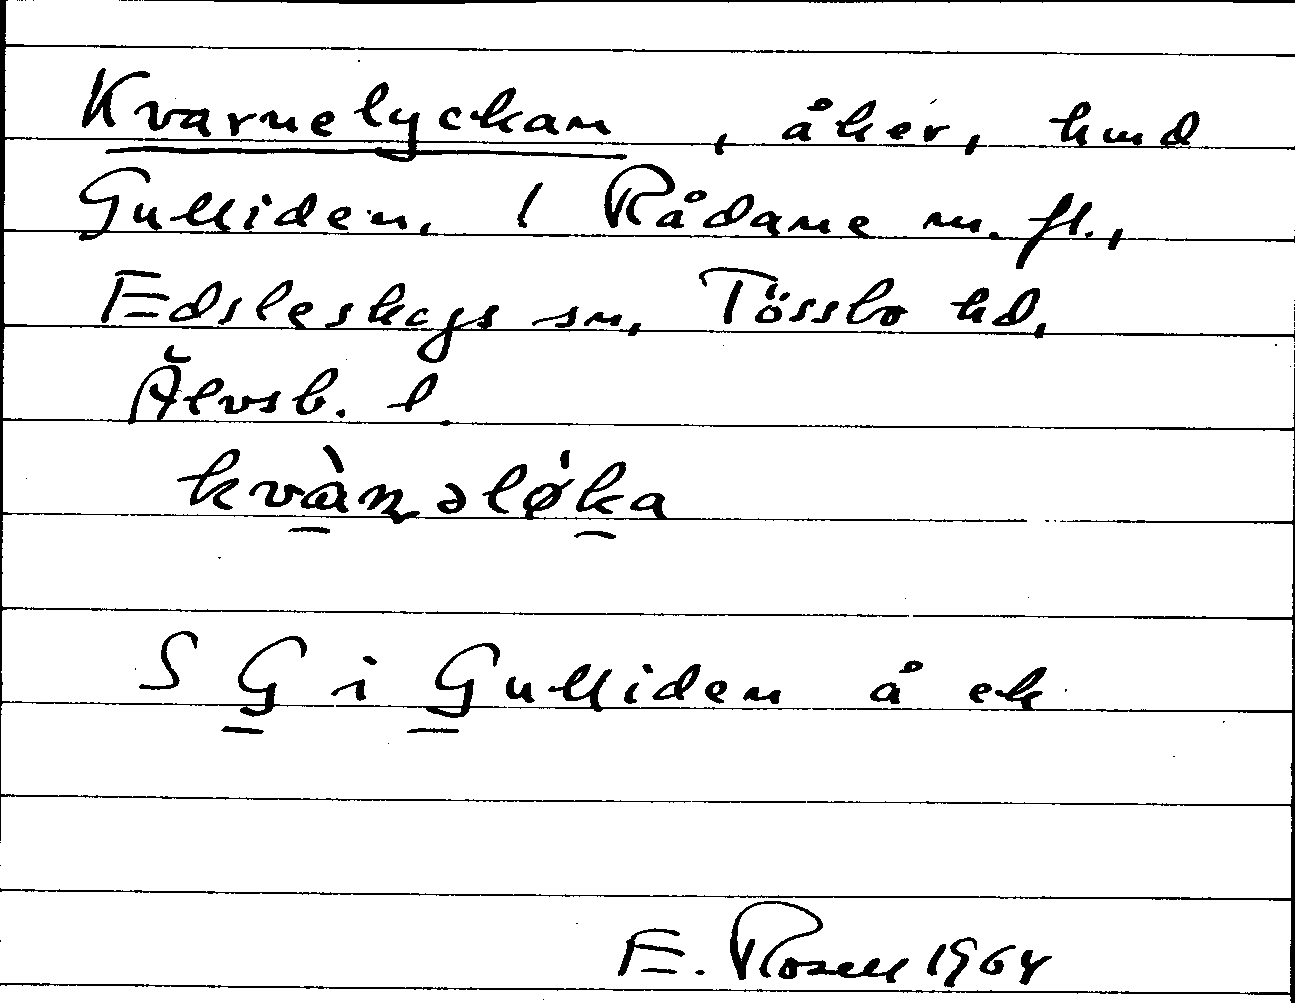 Kvarnelyckan, åker, hmd
Gulliden, 1 Rådane m. fl.,
Edsleskogs sn, Tössbo hd,
Älvsb. l
kvàṇəlø̍ka
S G i Gulliden å ek
E. Rosell 1964